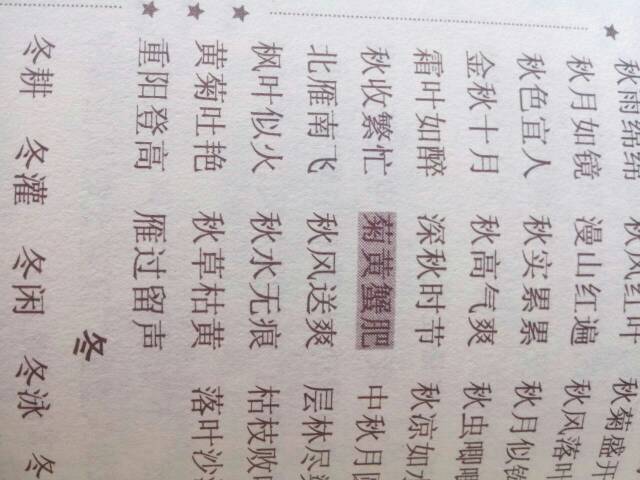 秋雨绵绵 秋风红叶 秋菊盛开
秋月如镜 漫山红遍 秋风落叶
秋色宜人 秋实累累 秋月似镜
金秋十月 秋高气爽 秋虫唧唧
霜叶如醉 深秋时节 秋凉如水
秋收繁忙 菊黄蟹肥 中秋月圆
北雁南飞 秋风送爽 层林尽
枫叶似火 秋水无痕 枯枝败
黄菊吐艳 秋草枯黄 落叶沙
重阳登高 雁过留声
冬
冬耕 冬灌 冬闲 冬泳 冬